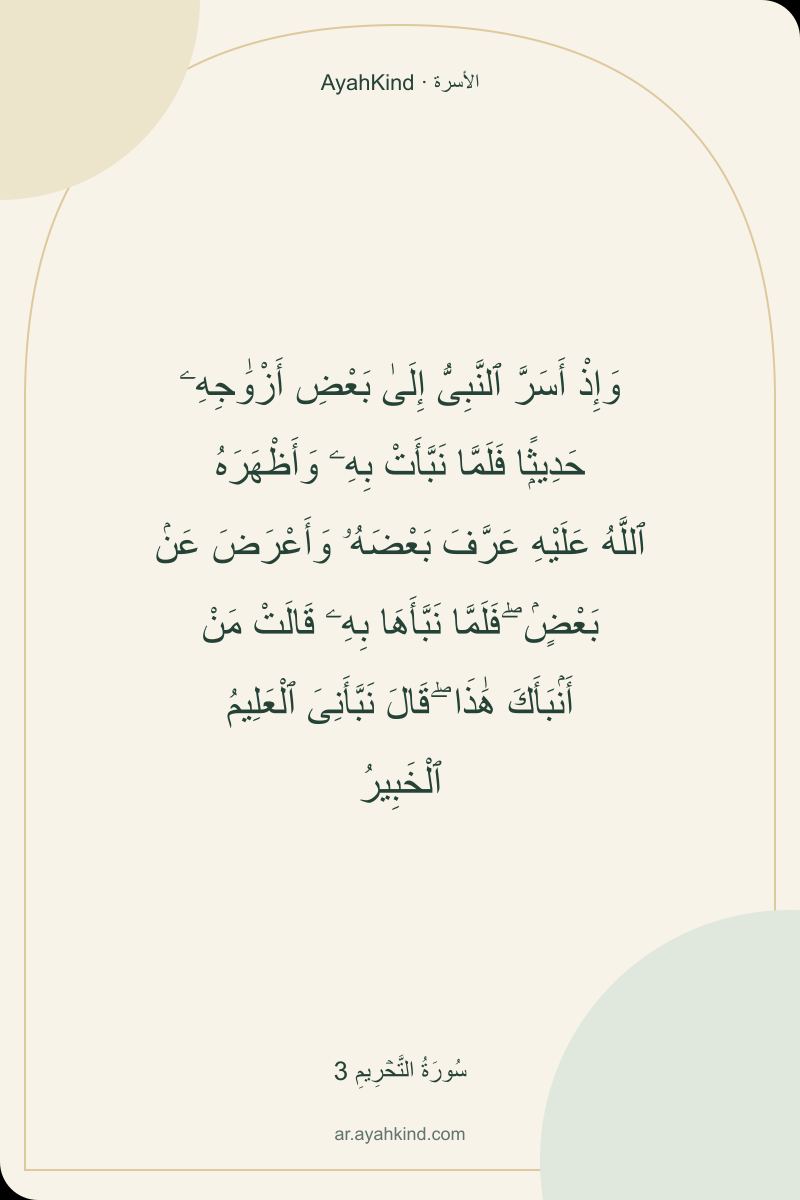 AyahKind · الأسرة
وَإِذْ أَسَرَّ ٱلنَّبِىُّ إِلَىٰ بَعْضِ أَزْوَٰجِهِۦ
حَدِيثًۭا فَلَمَّا نَبَّأَتْ بِهِۦ وَأَظْهَرَهُ
ٱللَّهُ عَلَيْهِ عَرَّفَ بَعْضَهُۥ وَأَعْرَضَ عَنۢ
بَعْضٍۢ ۖ فَلَمَّا نَبَّأَهَا بِهِۦ قَالَتْ مَنْ
أَنۢبَأَكَ هَٰذَا ۖ قَالَ نَبَّأَنِىَ ٱلْعَلِيمُ
ٱلْخَبِيرُ
سُورَةُ التَّحۡرِيمِ 3
ar.ayahkind.com